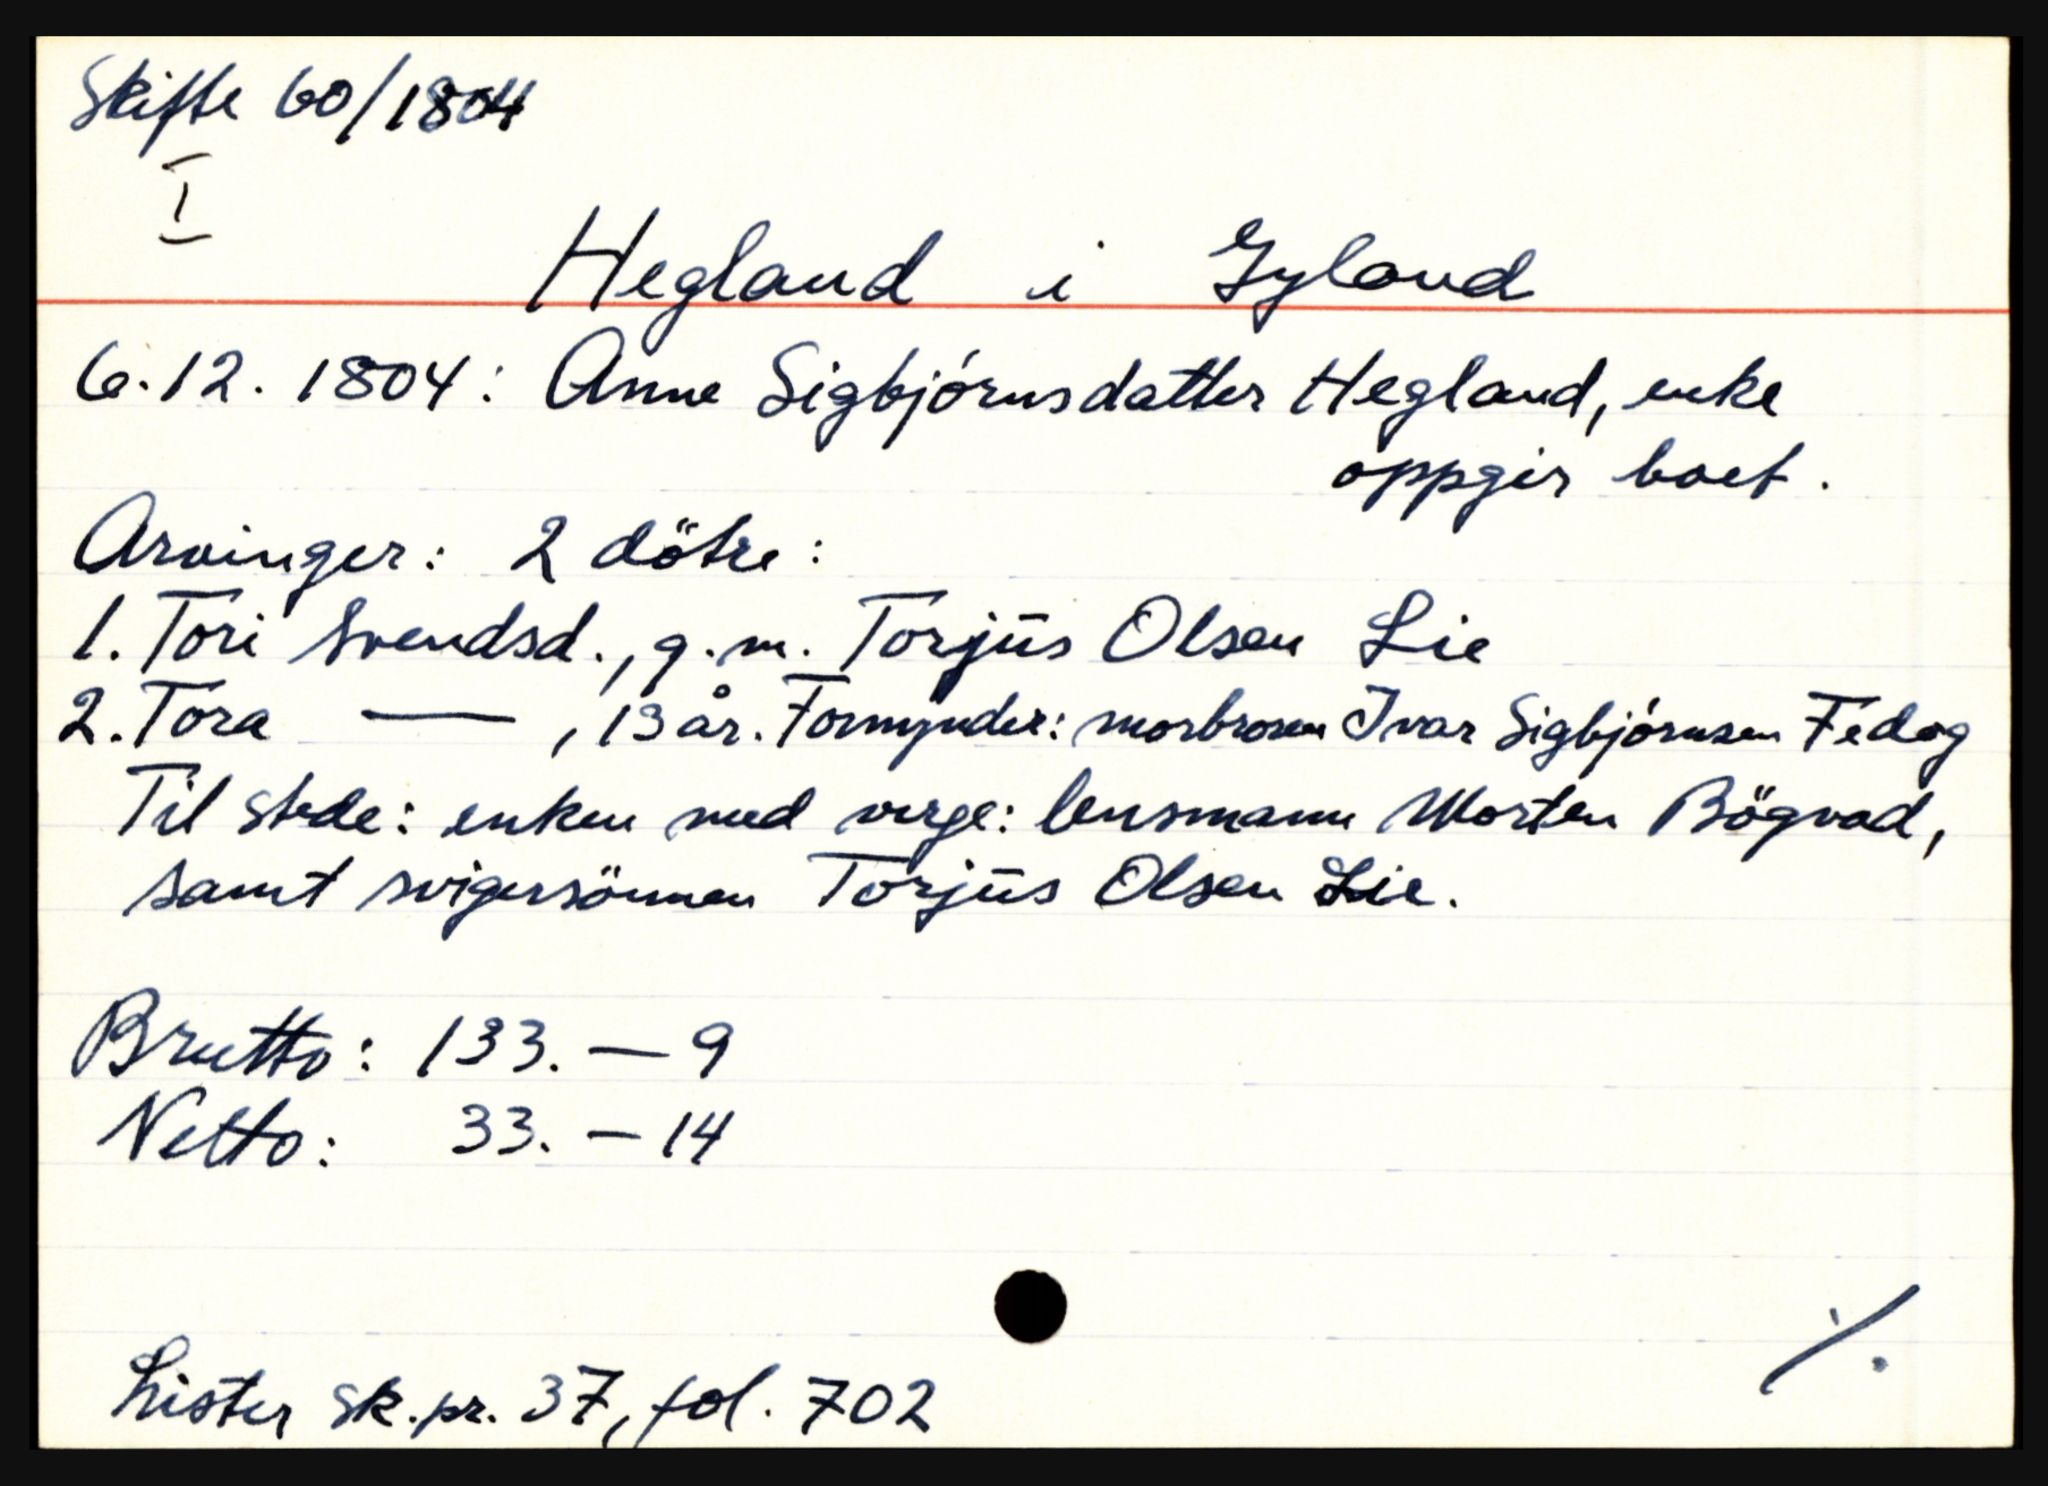 Skifte 60/1804
I
Hegland i Gyland
6.12. 1804: Anne Sigbjörnsdatter Hegland, enke
oppgir boet.
Arvinger: 2 dötre:
1. Tori Svendsd., g.m. Torjus Olsen Lie
2. Tora —— , 13 år. Formynder: morbroren Ivar Sigbjörnsen Fedog
Til stede: enken med verge: lensmann Morten Bögvad,
samt svigersönnen Torjus Olsen Lie.
Brutto: 133. — 9
Netto: 33. — 14
Lister sk.pr. 37, fol. 702
./.